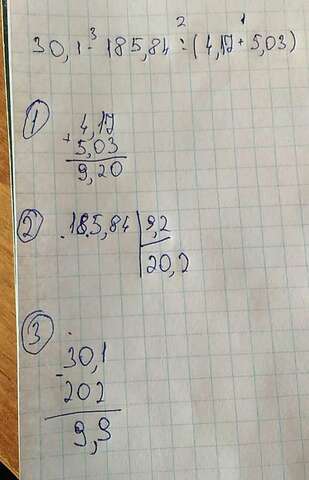 3 2 1
30,1 - 185,84 : (4,17 + 5,03)
1
4,17
+
5,03
9,20
2
185,84 9,2
20,2
3
30,1
-
202
9,9